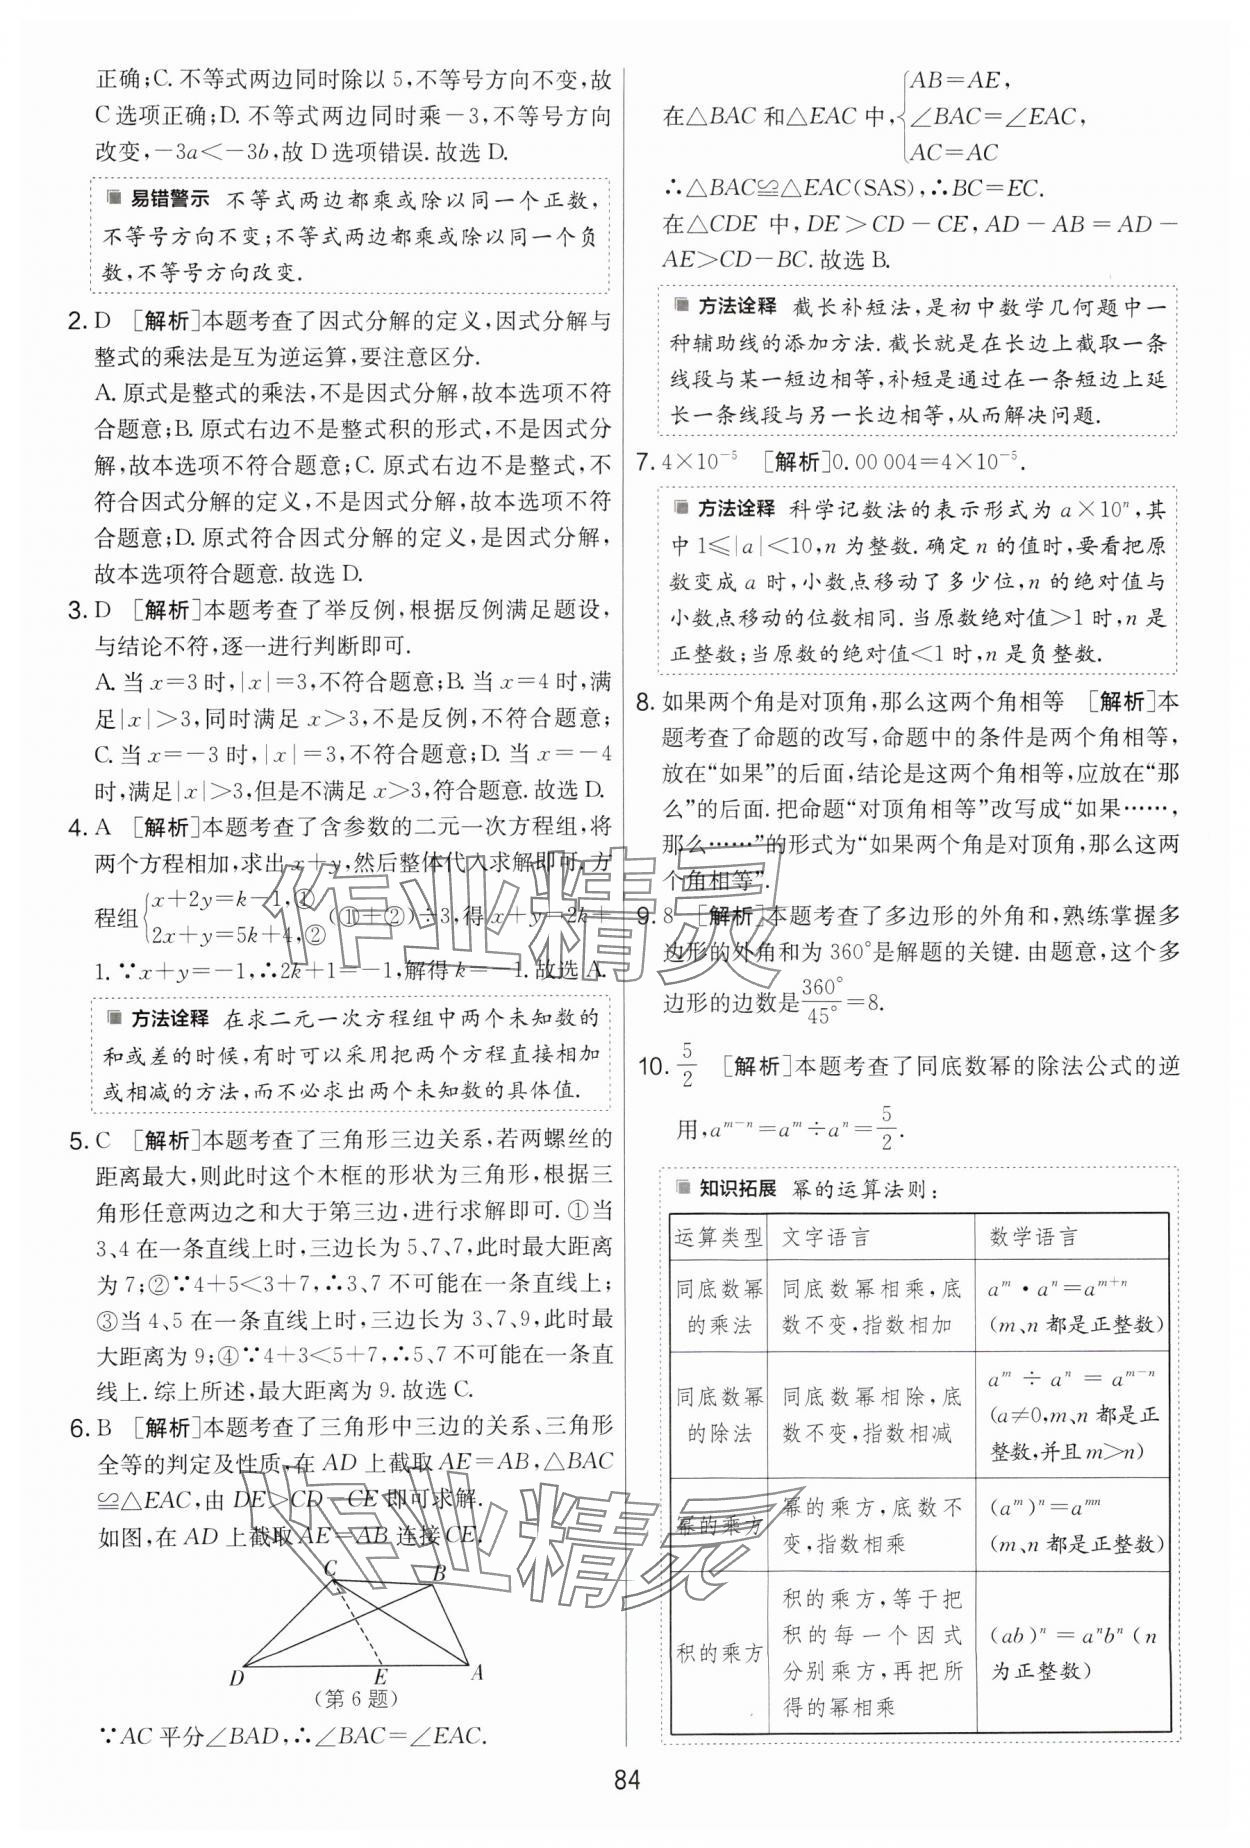 正确;C. 不等式两边同时除以 5,不等号方向不变,故
C选项正确;D. 不等式两边同时乘-3,不等号方向
改变,-3a<-3b,故 D选项错误.故选 D.
易错警示 不等式两边都乘或除以同一个正数,
不等号方向不变;不等式两边都乘或除以同一个负
数,不等号方向改变.
2. D [解析]本题考查了因式分解的定义,因式分解与
整式的乘法是互为逆运算,要注意区分.
A. 原式是整式的乘法,不是因式分解,故本选项不符
合题意;B. 原式右边不是整式积的形式,不是因式分
解,故本选项不符合题意;C. 原式右边不是整式,不
符合因式分解的定义,不是因式分解,故本选项不符
合题意;D. 原式符合因式分解的定义,是因式分解,
故本选项符合题意.故选 D.
3. D [解析]本题考查了举反例,根据反例满足题设,
与结论不符,逐一进行判断即可.
A. 当 x=3 时,|x|=3,不符合题意;B. 当 x=4 时,满
足|x|>3,同时满足 x>3,不是反例,不符合题意;
C. 当 x=-3 时,|x|=3,不符合题意;D. 当 x=-4
时,满足|x|>3,但是不满足 x>3,符合题意.故选 D.
4. A [解析]本题考查了含参数的二元一次方程组,将
两个方程相加,求出 x+y,然后整体代入求解即可.方
程组{x+2y=k-1,① 2x+y=5k+4,② (①+②)÷3,得 x+y=2k+
1. ∵x+y=-1,∴2k+1=-1,解得 k=-1.故选 A.
方法诠释 在求二元一次方程组中两个未知数的
和或差的时候,有时可以采用把两个方程直接相加
或相减的方法,而不必求出两个未知数的具体值.
5. C [解析]本题考查了三角形三边关系,若两螺丝的
距离最大,则此时这个木框的形状为三角形,根据三
角形任意两边之和大于第三边,进行求解即可.①当
3、4 在一条直线上时,三边长为 5、7、7,此时最大距离
为 7;②∵4+5<3+7,∴3、7 不可能在一条直线上;
③当 4、5 在一条直线上时,三边长为 3、7、9,此时最
大距离为 9;④∵4+3<5+7,∴5、7 不可能在一条直
线上.综上所述,最大距离为 9.故选 C.
6. B [解析]本题考查了三角形中三边的关系、三角形
全等的判定及性质,在 AD 上截取 AE=AB,△BAC
≌△EAC,由 DE>CD-CE 即可求解.
如图,在 AD 上截取 AE=AB,连接 CE.
C
B
D
E
A
(第 6 题)
∵AC 平分∠BAD,∴∠BAC=∠EAC.
在△BAC 和△EAC 中,{AB=AE, ∠BAC=∠EAC, AC=AC
∴△BAC≌△EAC(SAS),∴BC=EC.
在△CDE 中,DE>CD-CE,AD-AB=AD-
AE>CD-BC.故选 B.
方法诠释 截长补短法,是初中数学几何题中一
种辅助线的添加方法.截长就是在长边上截取一条
线段与某一短边相等,补短是通过在一条短边上延
长一条线段与另一长边相等,从而解决问题.
7. 4×10⁻⁵ [解析]0.00 004=4×10⁻⁵.
方法诠释 科学记数法的表示形式为 a×10ⁿ,其
中 1≤|a|<10,n 为整数.确定 n 的值时,要看把原
数变成 a 时,小数点移动了多少位,n 的绝对值与
小数点移动的位数相同.当原数绝对值>1 时,n 是
正整数;当原数的绝对值<1 时,n 是负整数.
8. 如果两个角是对顶角,那么这两个角相等 [解析]本
题考查了命题的改写,命题中的条件是两个角相等,
放在“如果”的后面,结论是这两个角相等,应放在“那
么”的后面.把命题“对顶角相等”改写成“如果……,
那么……”的形式为“如果两个角是对顶角,那么这两
个角相等”.
9. 8 [解析]本题考查了多边形的外角和,熟练掌握多
边形的外角和为 360°是解题的关键.由题意,这个多
边形的边数是360°/45°=8.
10. 5/2 [解析]本题考查了同底数幂的除法公式的逆
用,aᵐ⁻ⁿ=aᵐ÷aⁿ=5/2.
知识拓展 幂的运算法则:
运算类型 文字语言 数学语言
同底数幂 同底数幂相乘,底 aᵐ·aⁿ=aᵐ⁺ⁿ
的乘法 数不变,指数相加 (m、n 都是正整数)
同底数幂 同底数幂相除,底 aᵐ÷aⁿ=aᵐ⁻ⁿ
的除法 数不变,指数相减 (a≠0,m、n 都是正
整数,并且 m>n)
幂的乘方 幂的乘方,底数不 (aᵐ)ⁿ=aᵐⁿ
变,指数相乘 (m、n 都是正整数)
积的乘方,等于把
积的每一个因式 (ab)ⁿ=aⁿbⁿ(n
积的乘方 分别乘方,再把所 为正整数)
得的幂相乘
84
作业精灵
作业精灵